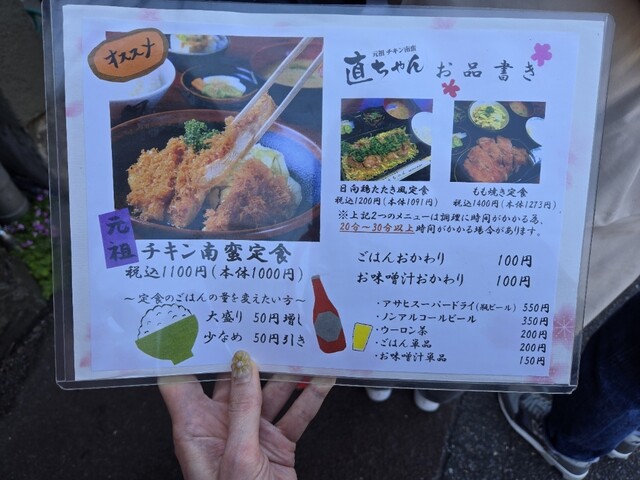 オススメ
元祖
チキン南蛮定食
税込1100円(本体1000円)
～定食のごはんの量を変えたい方～
大盛り 50円増し
少なめ 50円引き
元祖 チキン南蛮
直ちゃん お品書き
日向鶏たたき風定食
税込1200円(本体1091円)
もも焼き定食
税込1400円(本体1273円)
※上記2つのメニューは調理に時間がかかる為、
20分～30分以上時間がかかる場合があります。
ごはんおかわり 100円
お味噌汁おかわり 100円
・アサヒスーパードライ(瓶ビール) 550円
・ノンアルコールビール 350円
・ウーロン茶 200円
・ごはん単品 200円
・お味噌汁単品 150円